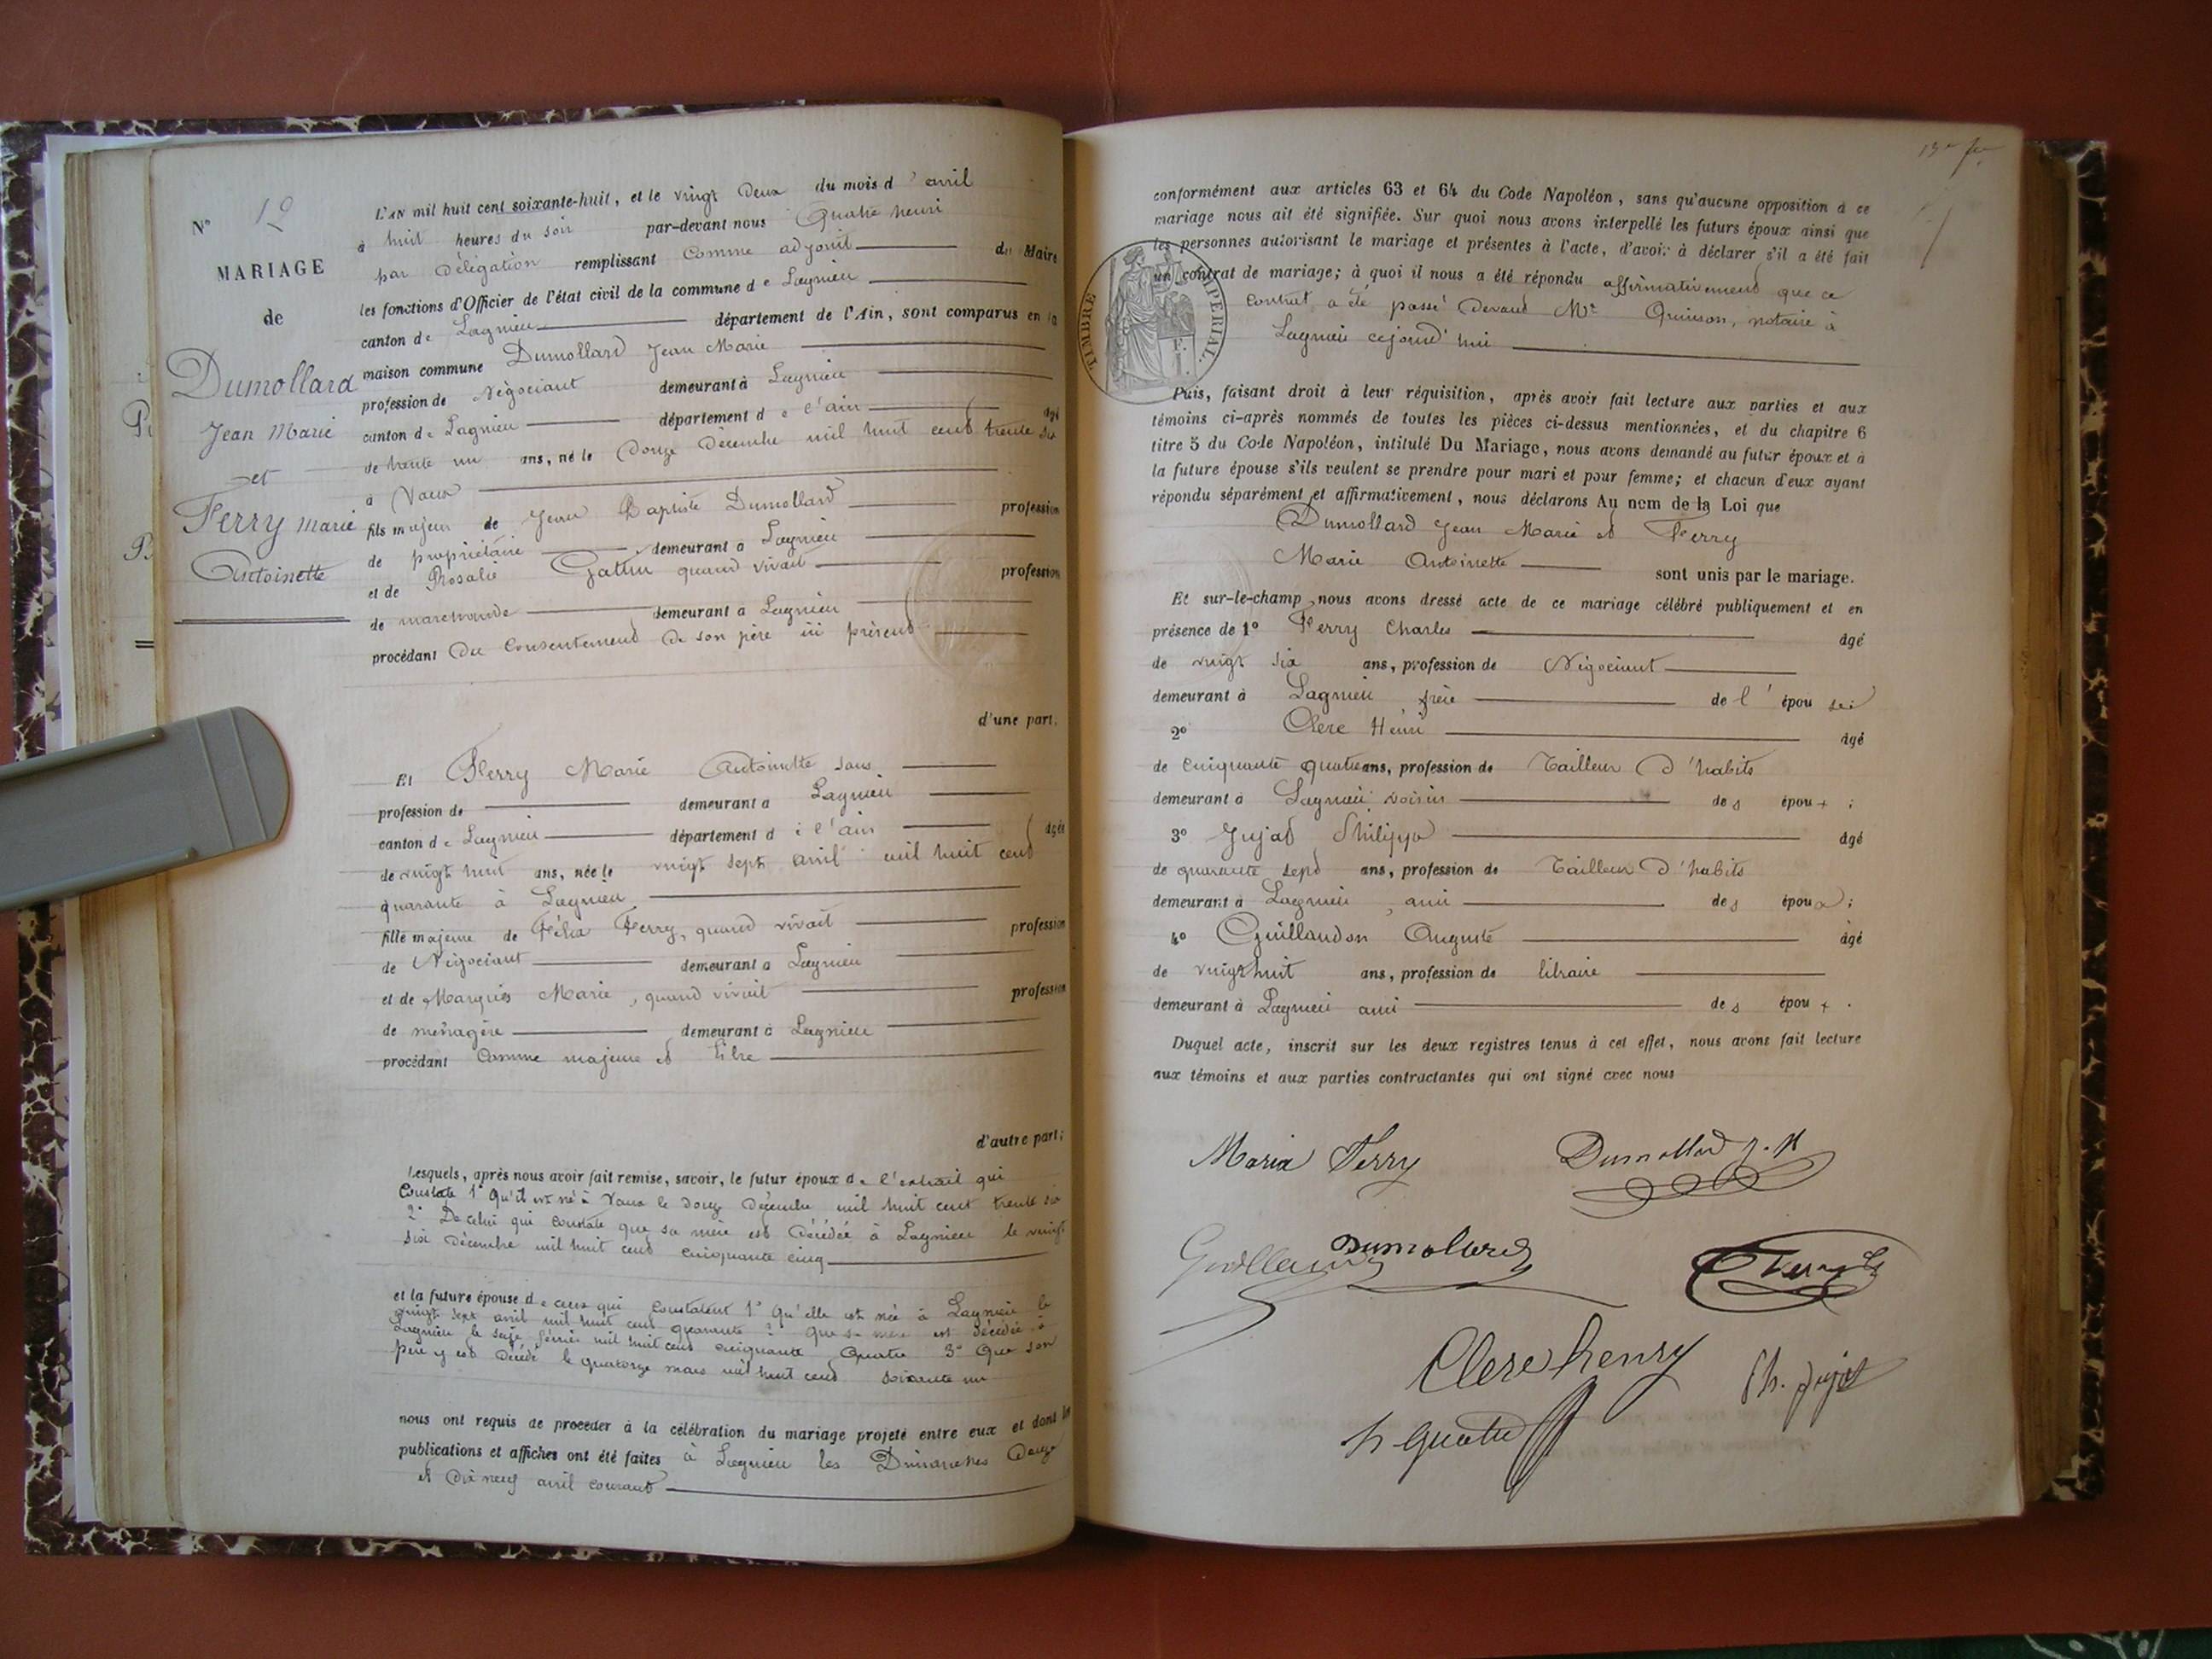 N° 12
MARIAGE
de
Dumollard
Jean Marie
et
Ferry Marie
Antoinette
L'AN mil huit cent soixante-huit, et le vingt Deux du mois d'avril
à huit heures du soir par-devant nous Quatre henri
par Délégation remplissant comme adjoint du Maire
les fonctions d'Officier de l'état civil de la commune de Lagnieu
canton de Lagnieu département de l'Ain, sont comparus en la
maison commune Dumollard Jean Marie
profession de Négociant demeurant à Lagnieu
canton de Lagnieu département de l'ain âgé
de trente un ans, né le Douze Décembre mil huit cent trente six
à Vaux
fils majeur de Jean Baptiste Dumollard profession
de propriétaire demeurant à Lagnieu
et de Rosalie quand vivait profession
de marchande demeurant à Lagnieu
procédant Du Consentement de son père ici présent
d'une part.
Et Ferry Marie Antoinette sans
profession de demeurant à Lagnieu
canton de Lagnieu département de l'ain âgée
de vingt huit ans, née le vingt sept avril mil huit cent
quarante à Lagnieu
fille majeure de Félix Ferry, quand vivait profession
de Négociant demeurant à Lagnieu
et de Marquis Marie, quand vivait profession
de ménagère demeurant à Lagnieu
procédant comme majeure et libre
d'autre part;
Lesquels, après nous avoir fait remise, savoir, le futur époux de l'extrait qui
Constate 1° Qu'il est né à Vaux le douze Décembre mil huit cent trente six
2° De celui qui constate que sa mère est Décédée à Lagnieu le vingt
six Décembre mil huit cent cinquante cinq
et la future épouse de ceux qui constatent 1° Qu'elle est née à Lagnieu le
vingt sept avril mil huit cent quarante 2° que sa mère est Décédée à
Lagnieu le seize février mil huit cent cinquante Quatre 3° Que son
père y est Décédé le quatorze mars mil huit cent soixante un
nous ont requis de procéder à la célébration du mariage projeté entre eux et dont les
publications et affiches ont été faites à Lagnieu les Dimanches Douze
et Dix neuf avril courant
conformément aux articles 63 et 64 du Code Napoléon, sans qu'aucune opposition à ce
mariage nous ait été signifiée. Sur quoi nous avons interpellé les futurs époux ainsi que
les personnes autorisant le mariage et présentes à l'acte, d'avoir à déclarer s'il a été fait
un contrat de mariage; à quoi il nous a été répondu affirmativement que ce
contrat a été passé Devant Me Quinson, notaire à
Lagnieu cejourd'hui
TIMBRE IMPERIAL
Puis, faisant droit à leur réquisition, après avoir fait lecture aux parties et aux
témoins ci-après nommés de toutes les pièces ci-dessus mentionnées, et du chapitre 6
titre 5 du Code Napoléon, intitulé Du Mariage, nous avons demandé au futur époux et à
la future épouse s'ils veulent se prendre pour mari et pour femme; et chacun d'eux ayant
répondu séparément et affirmativement, nous déclarons Au nom de la Loi que
Dumollard Jean Marie et Ferry
Marie Antoinette sont unis par le mariage.
Et sur-le-champ nous avons dressé acte de ce mariage célébré publiquement et en
présence de 1° Ferry Charles âgé
de vingt six ans, profession de Négociant
demeurant à Lagnieu frère de l'épouse
2° Clere Henri âgé
de Cinquante quatre ans, profession de Tailleur D'habits
demeurant à Lagnieu, voisin des époux;
3° Jujat Philippe âgé
de quarante sept ans, profession de Tailleur D'habits
demeurant à Lagnieu, ami des époux;
4° Guillaudon Auguste âgé
de vingt huit ans, profession de libraire
demeurant à Lagnieu ami des époux.
Duquel acte, inscrit sur les deux registres tenus à cet effet, nous avons fait lecture
aux témoins et aux parties contractantes qui ont signé avec nous
Maria Ferry Dumollard J. M
Dumollard
Clere henry Ph. Jujat
h Quatre